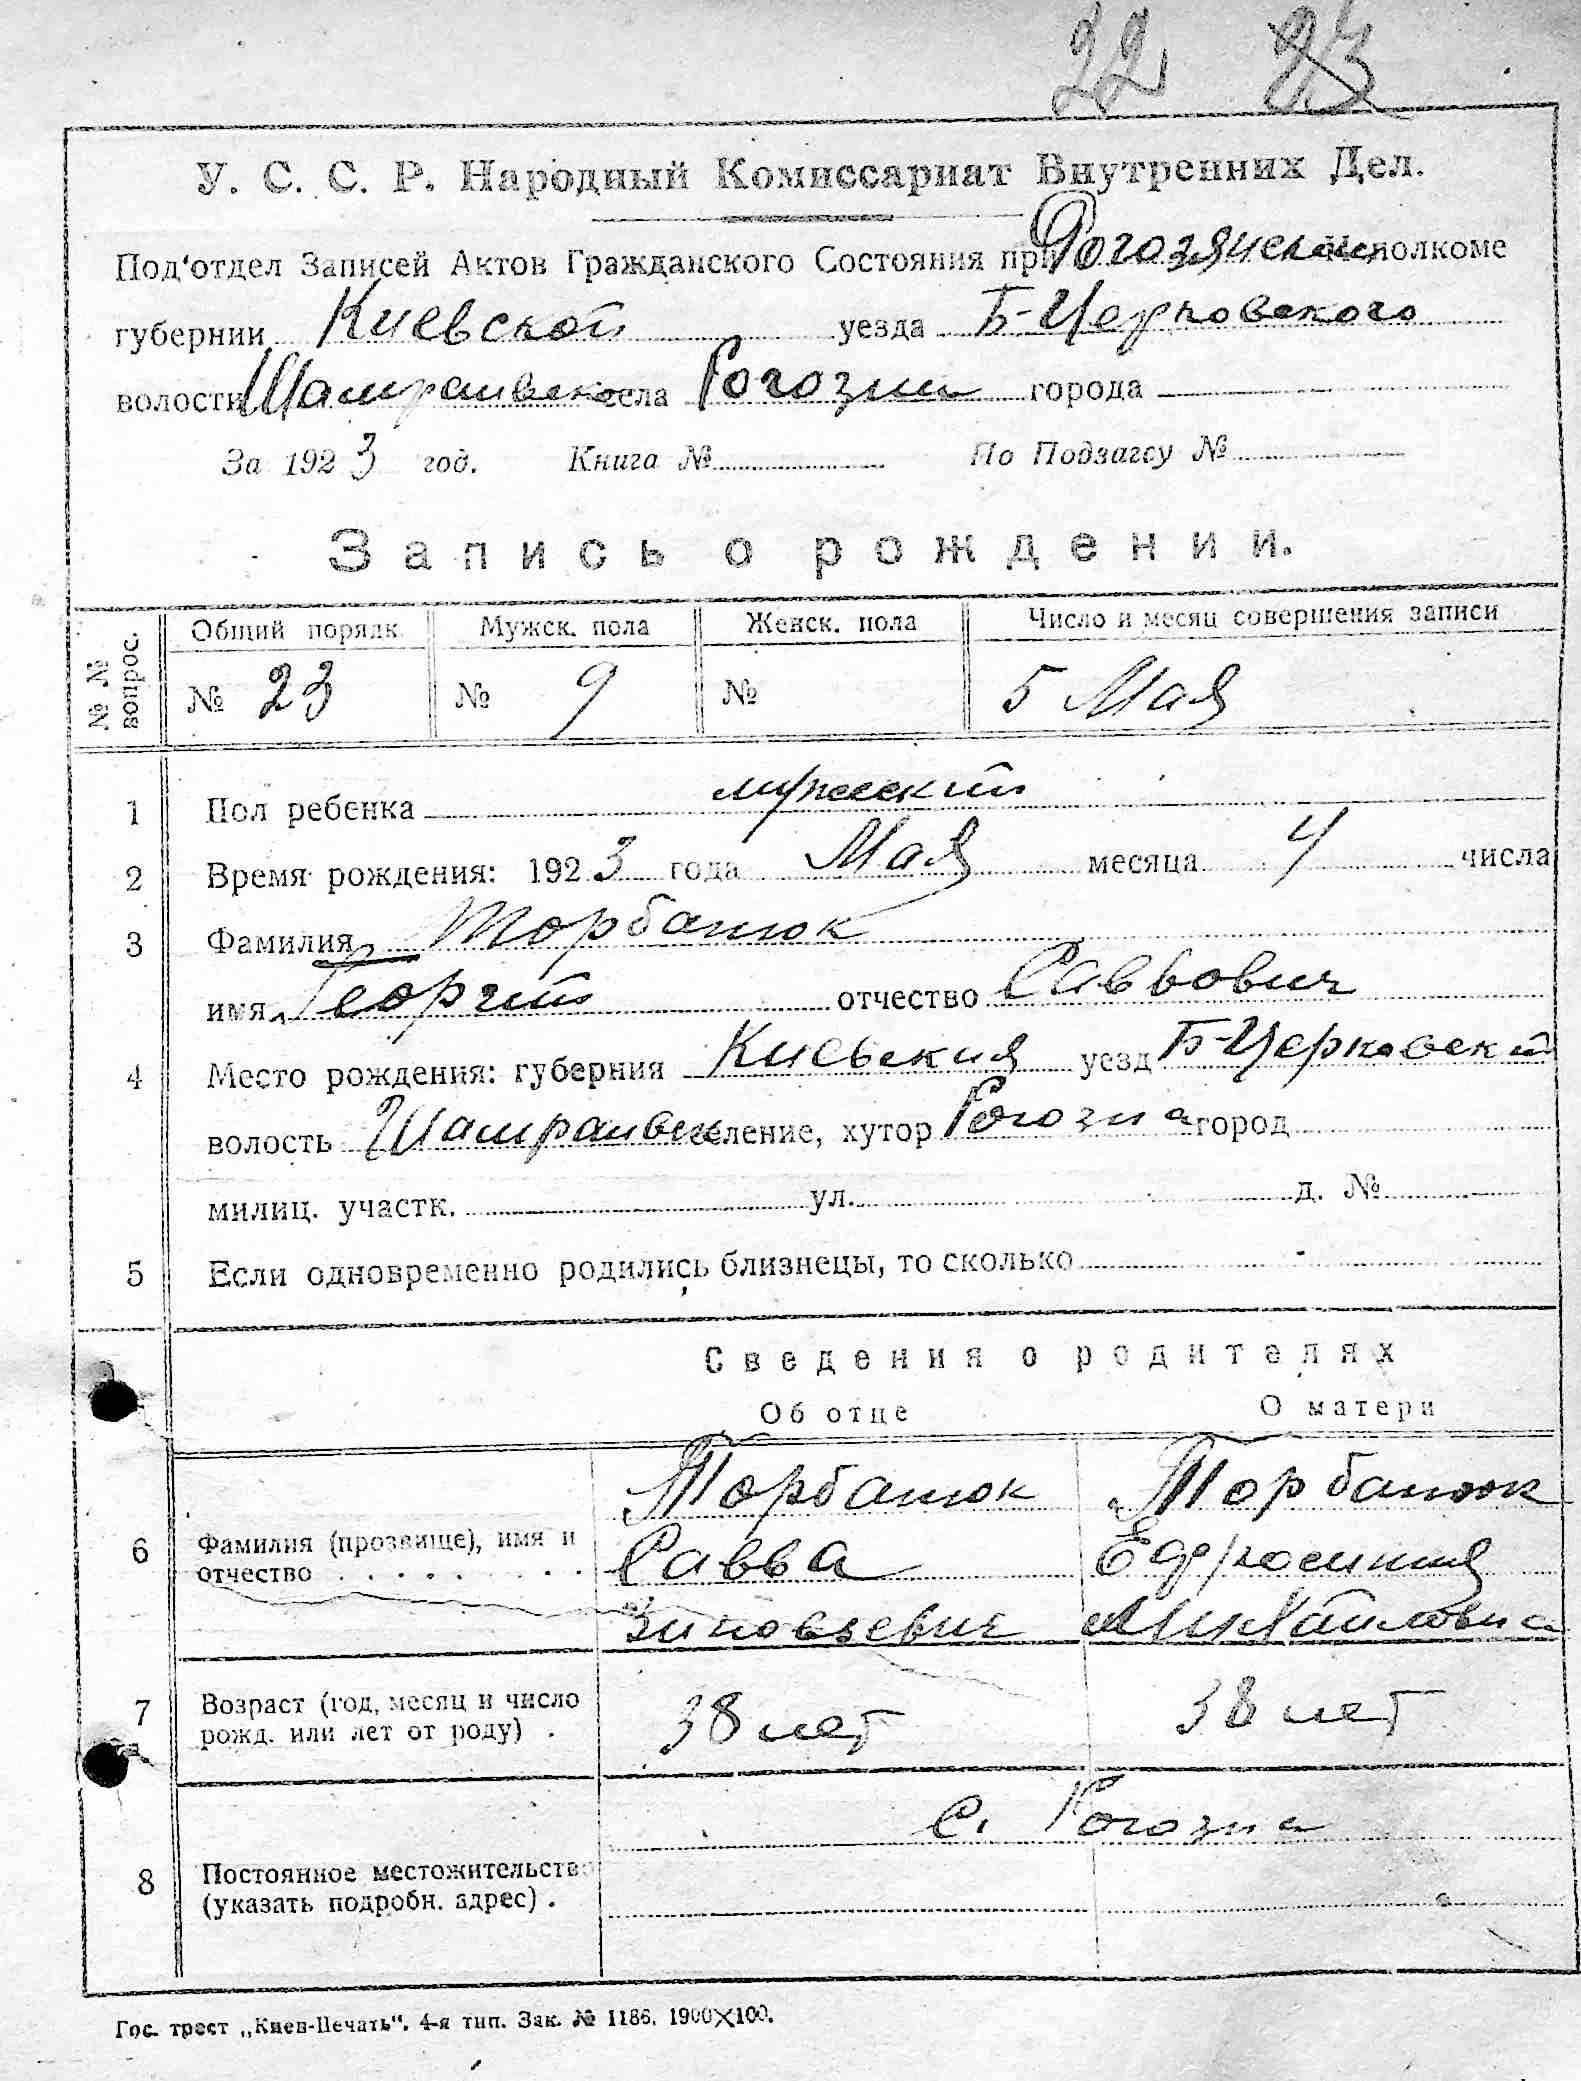 22 23
У. С. С. Р. Народный Комиссариат Внутренних Дел.
Под'отдел Записей Актов Гражданского Состояния при Рогозянском Исполкоме
губернии Киевской уезда Б-Церковского
волости Шамраивск села Рогозни города
За 1923 год. Книга № По Подзагсу №
Запись о рождении.
№ № вопрос. Общий порядк. Мужск. пола Женск. пола Число и месяц совершения записи
№ 23 № 9 № 5 Мая
1 Пол ребенка мужеский
2 Время рождения: 1923 года Мая месяца 4 числа
3 Фамилия Торбанюк
имя Георгий отчество Саввович
4 Место рождения: губерния Киевския уезд Б-Церковский
волость Шамраивск селение, хутор Рогозна город
милиц. участк. ул. д. №
5 Если одновременно родились близнецы, то сколько
Сведения о родителях
Об отце О матери
Торбанюк Торбанюк
6 Фамилия (прозвище), имя и отчество Савва Ефросиния
Зиновьевич Михайловна
7 Возраст (год, месяц и число рожд. или лет от роду) . 38 лет 38 лет
с. Рогозна
8 Постоянное местожительство (указать подробн. адрес) .
Гос. трест „Киев-Печать“. 4-я тип. Зак. № 1186. 1900×100.